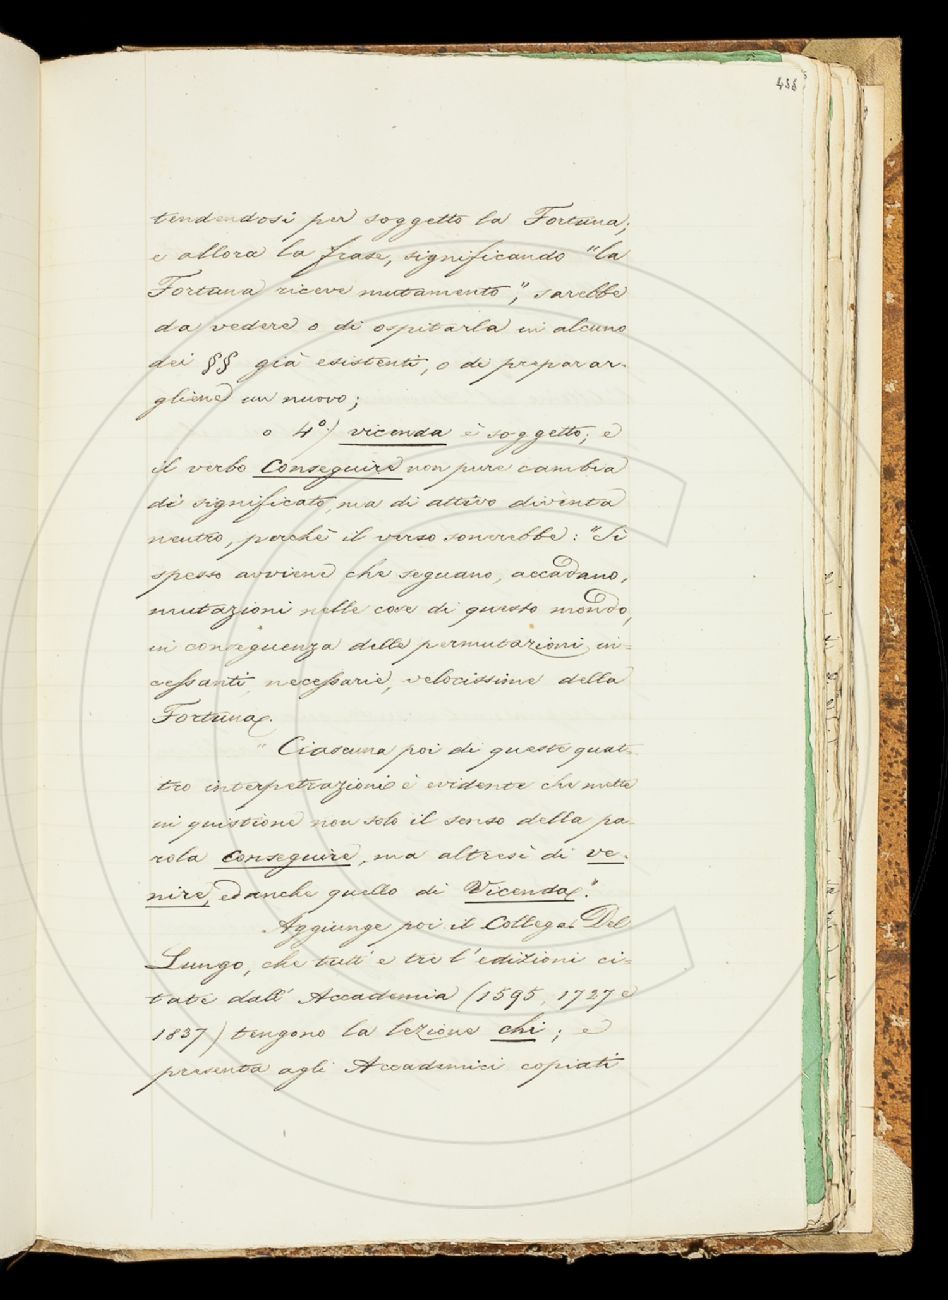 tendendosi per soggetto la Fortuna;
e allora la frase, significando "la
Fortuna riceve mutamento", sarebbe
da vedere o di ospitarla in alcuno
dei §§ già esistenti, o di preparar-
gliene un nuovo;
o 4º) vicenda è soggetto; e
il verbo Conseguire non pure cambia
di significato, ma di attivo diventa
neutro, perchè il verso sonerebbe: "Sì
spesso avviene che seguano, accadano,
mutazioni nelle cose di questo mondo,
in conseguenza delle permutazioni in-
cessanti, necessarie, velocissime della
Fortuna.
" Ciascuna poi di queste quat-
tro interpetrazioni è evidente che mette
in quistione non solo il senso della pa-
rola conseguire, ma altresì di ve-
nire, ed anche quello di Vicenda".
Aggiunge poi il Collega Del
Lungo, che tutt' e tre l' edizioni ci-
tate dall' Accademia (1595, 1727 e
1837) tengono la lezione chi; e
presenta agli Accademici copiati